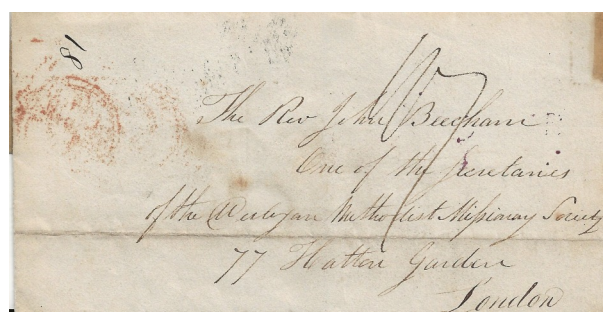 18
The Rev John Beecham
One of the Secretaries
of the Wesleyan Methodist Missionary Society
77 Hatton Garden
London